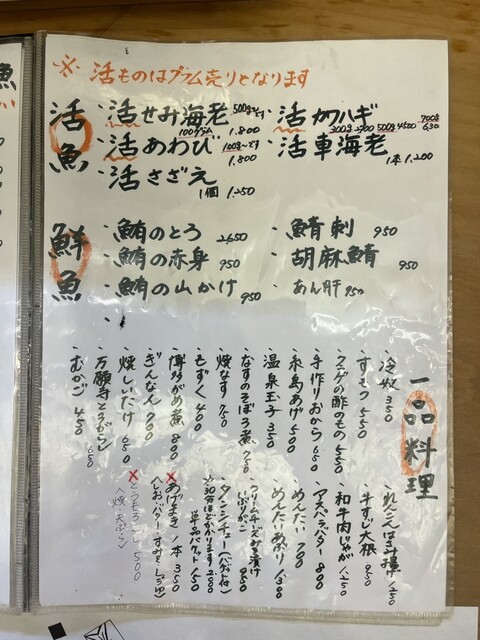 ※ 活ものはグラム売りとなります
活魚
・活せみ海老 500g〜です
100グラム 1.800
・活あわび 100g〜です
1.800
・活さざえ
1個 1.250
・活カワハギ
300g 2700 500g 4500 700g 6.30
・活車海老
1本 1.200
鮮魚
・鮪のとろ 2650
・鮪の赤身 950
・鮪の山かけ 950
・鯖刺 950
・胡麻鯖 950
・あん肝 950
一品料理
冷奴 350
すもつ 550
クラゲの酢のもの 550
手作りおから 650
糸島あげ 500
温泉玉子 350
なすのそぼろ煮 750
焼なす 750
もずく 400
博多がめ煮 800
ぎんなん 700
焼しいたけ 650
万願寺とうがらし 650
むかご 450
れんこんはさみ揚げ 1.250
牛すじ大根 950
和牛肉じゃが 1.250
アスパラバター 800
めんたい 700
めんたいあぶり 800
クリームチーズみそ漬け
いぶりがっこ 950
タンシチュー(バゲット付)
(30分ほどかかります) 2.800
単品バゲット 150
×あげまき 1本 350
(しお・バター・すみそ・しょうゆ)
×とうもろこし 500
(焼・天ぷら)